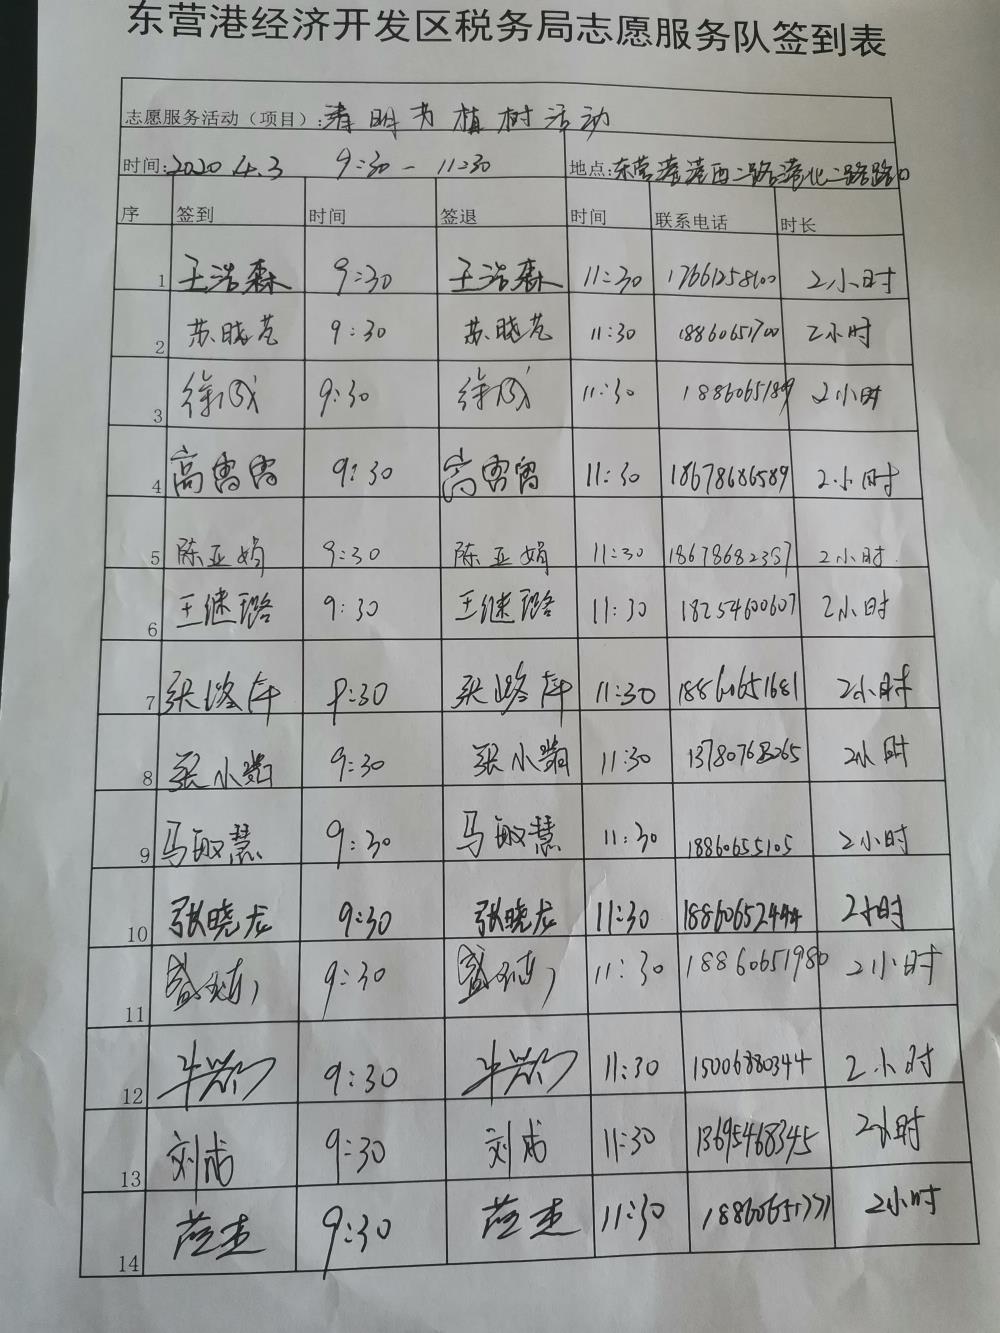 东营港经济开发区税务局志愿服务队签到表
志愿服务活动（项目）:清明节植树活动
时间:2020.4.3 9:30-11:30 地点:东营港港西二路港北二路路口
序 签到 时间 签退 时间 联系电话 时长
1 王浩森 9:30 王浩森 11:30 17661258100 2小时
2 苏晓艺 9:30 苏晓艺 11:30 18860651700 2小时
3 徐 9:30 徐 11:30 18860651809 2小时
4 高雷雷 9:30 高雷雷 11:30 18678686589 2小时
5 陈亚娟 9:30 陈亚娟 11:30 18678682357 2小时
6 王继璐 9:30 王继璐 11:30 18254600607 2小时
7 张 9:30 张 11:30 18860651681 2小时
8 张小 9:30 张小 11:30 13780768265 2小时
9 马敏慧 9:30 马敏慧 11:30 18860655105 2小时
10 张晓龙 9:30 张晓龙 11:30 18860652444 2小时
11 盛 9:30 盛 11:30 18860651980 2小时
12 牛 9:30 牛 11:30 15006880344 2小时
13 刘成 9:30 刘成 11:30 13695468345 2小时
14 9:30 11:30 18860651771 2小时